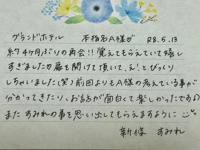 グランドホテル 本指名A様が R8.5.13
約4ヶ月ぶりの再会!! 覚えてもらえていて嬉し
すぎましたが扉を開けて頂いて、え!とびっくり
しちゃいました(笑)前回よりもA様の考えている事が
分かってきたり、お話が面白くて楽しかったです
またすみれの事を思い出してもらえますように
新條 すみれ